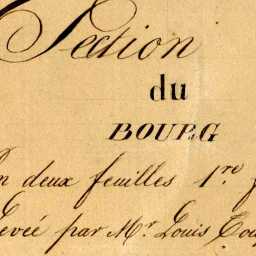 Section
du
BOURG
En deux feuilles 1.re
Levée par Mr. Louis